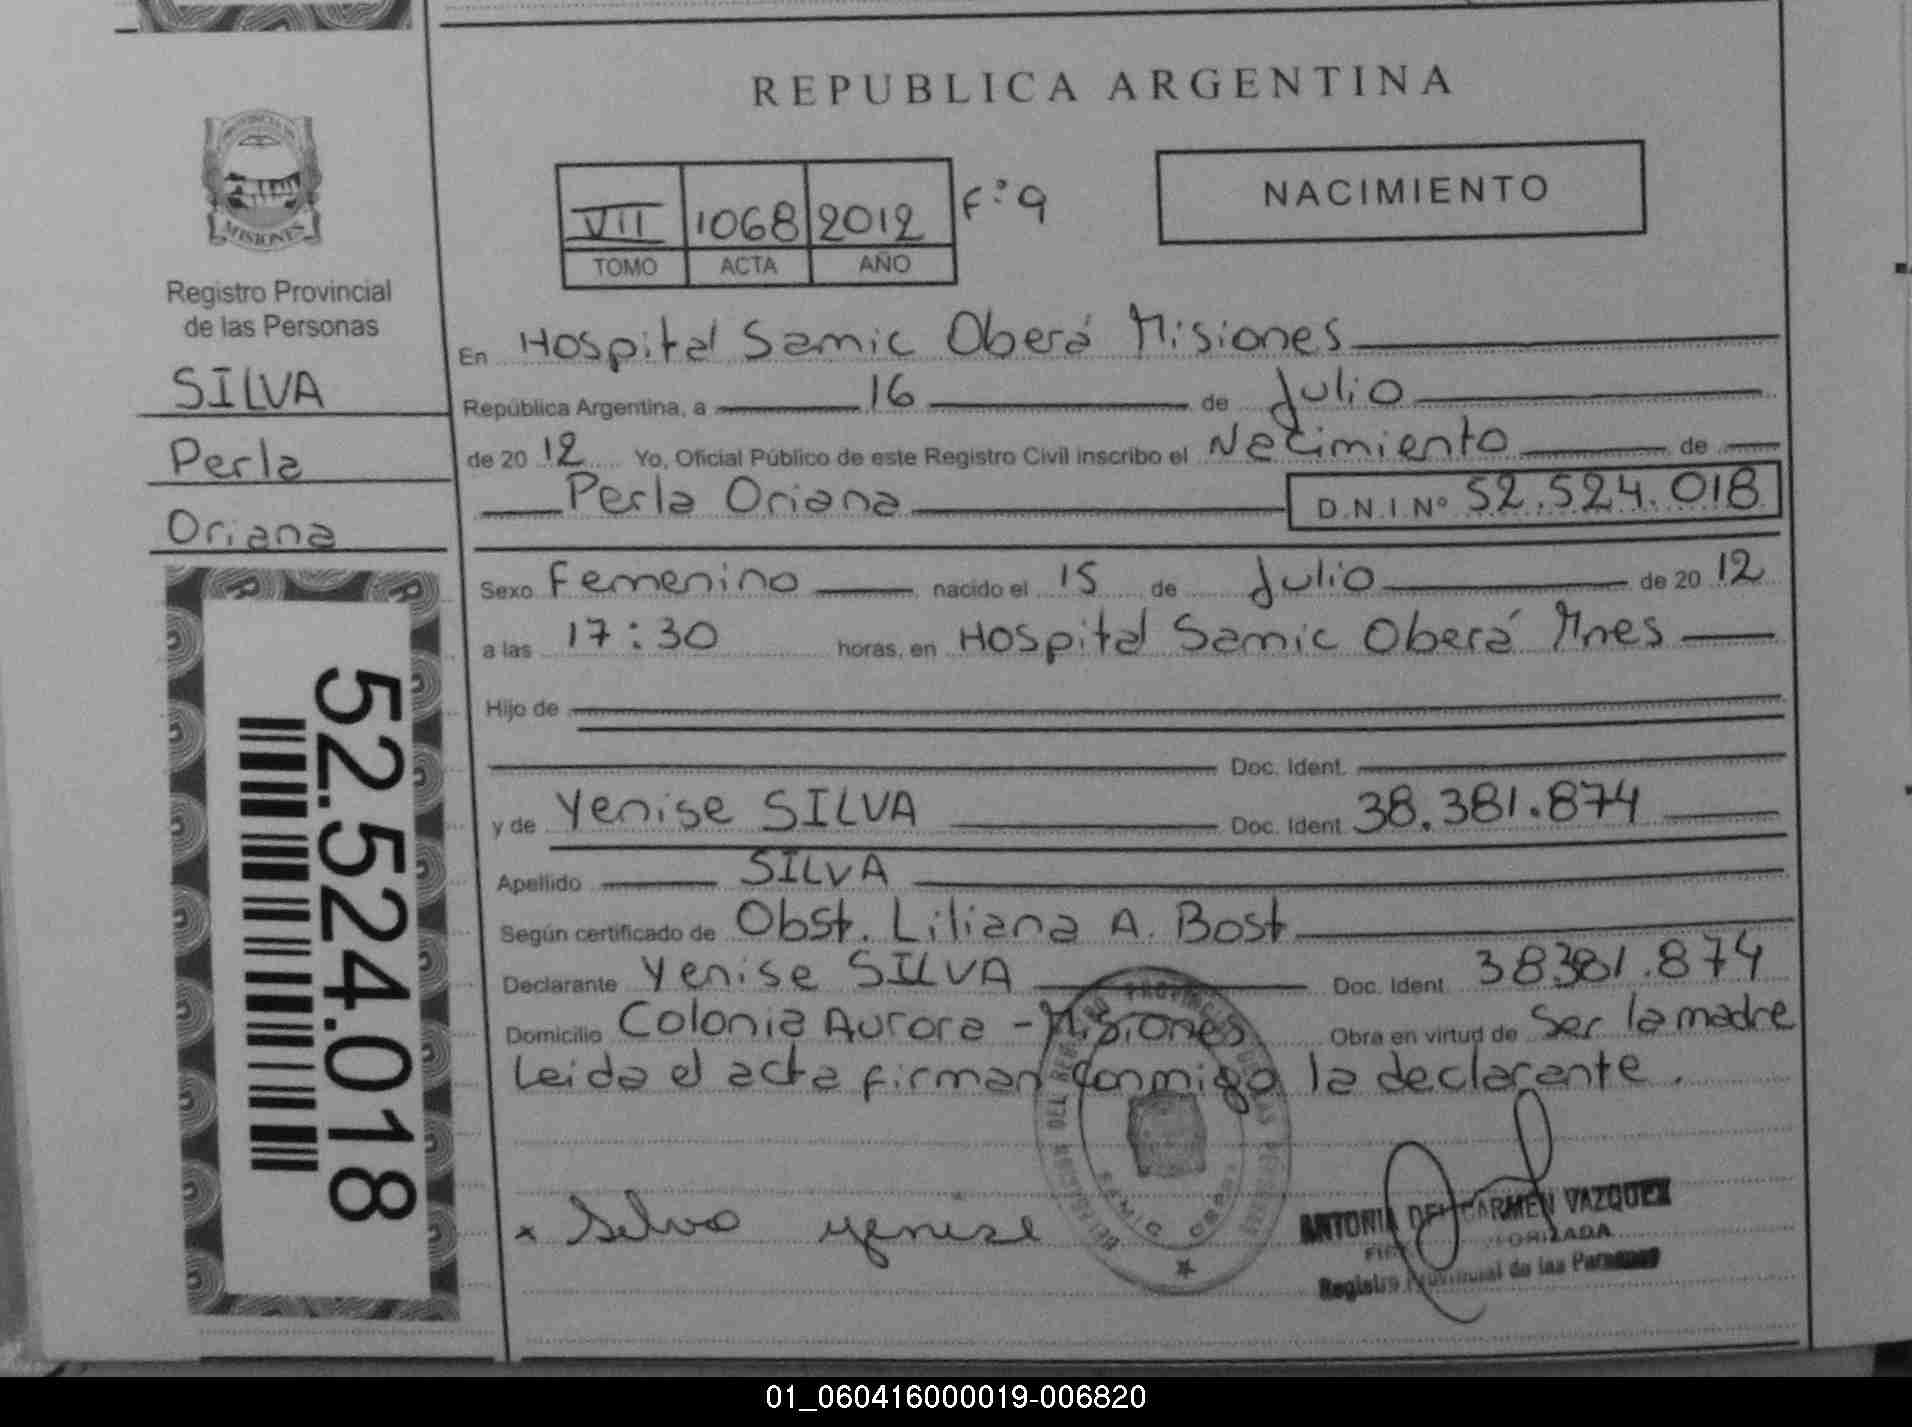 REPUBLICA ARGENTINA
PROVINCIA DE
MISIONES
Registro Provincial
de las Personas
SILVA
Perla
Oriana
52.524.018
VII 1068 2012 F:9
TOMO ACTA AÑO
NACIMIENTO
En Hospital Samic Oberá Misiones
República Argentina, a 16 de Julio
de 20 12 Yo, Oficial Público de este Registro Civil inscribo el Nacimiento de
Perla Oriana D.N.I.Nº 52.524.018
Sexo Femenino nacido el 15 de Julio de 20 12
a las 17:30 horas, en Hospital Samic Oberá Mnes
Hijo de
Doc. Ident.
y de Yenise SILVA Doc. Ident 38.381.874
Apellido SILVA
Según certificado de Obst. Liliana A. Bost
Declarante Yenise SILVA Doc. Ident 38381.874
Domicilio Colonia Aurora - Misiones Obra en virtud de Ser la madre
Leida el acta firman conmigo la declarante.
x Silva yenise
SAMIC OBERA
ANTONIA DEL CARMEN VAZQUEZ
Registro Provincial de las Personas
01_060416000019-006820